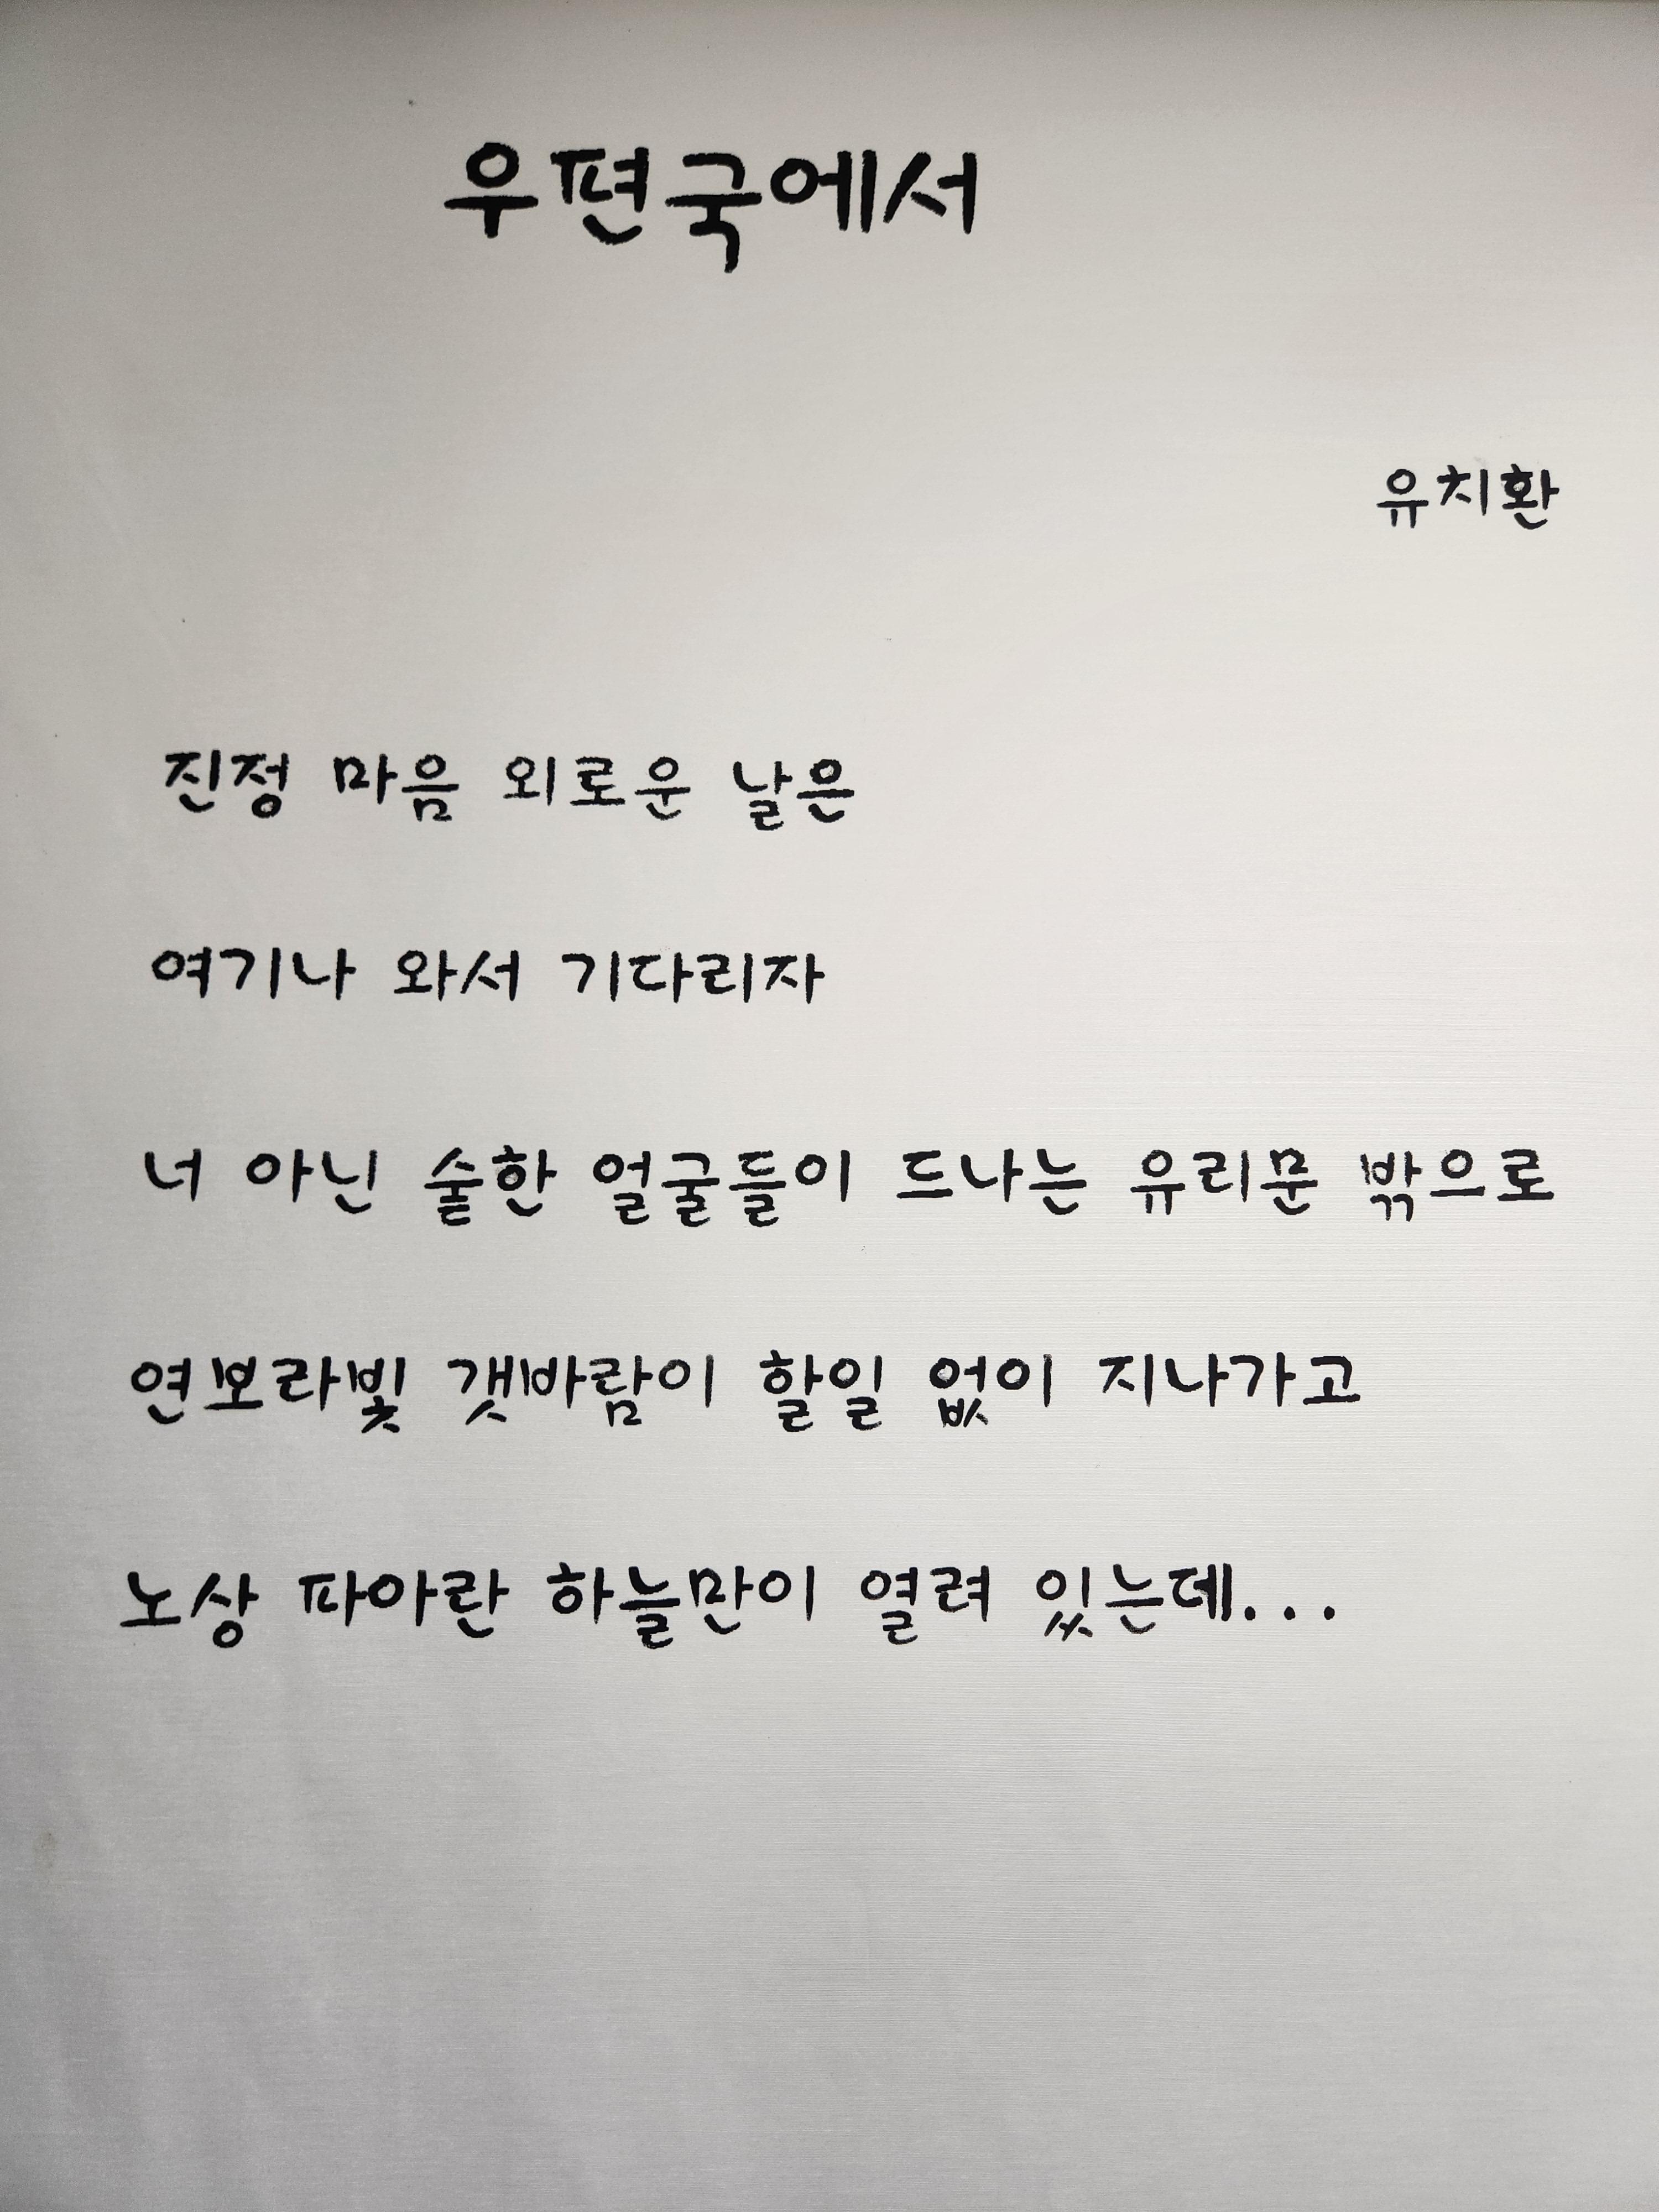 우편국에서
유치환
진정 마음 외로운 날은
여기나 와서 기다리자
너 아닌 숱한 얼굴들이 드나는 유리문 밖으로
연보라빛 갯바람이 할일 없이 지나가고
노상 파아란 하늘만이 열려 있는데...